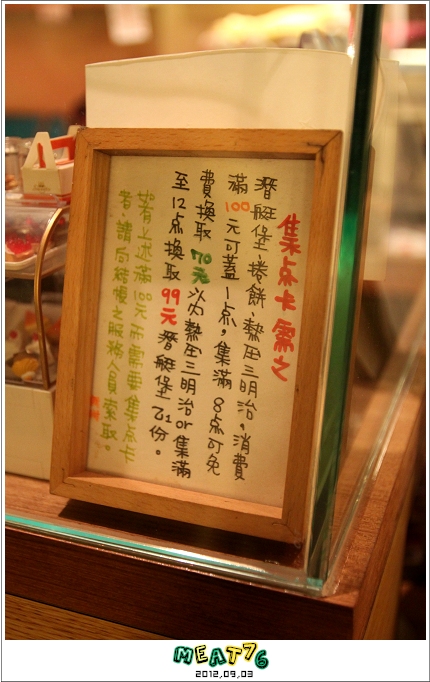 集点卡需之
潛艇堡、捲餅、熱压三明治。消費
滿100元可蓋1点，集滿8点可免
費換取70元以內熱压三明治or集滿
至12点換取99元潛艇堡乙份。
若有上述滿100元而需要集点卡
者，請向結檯之服務人員索取。
MEAT76
2012,09,03